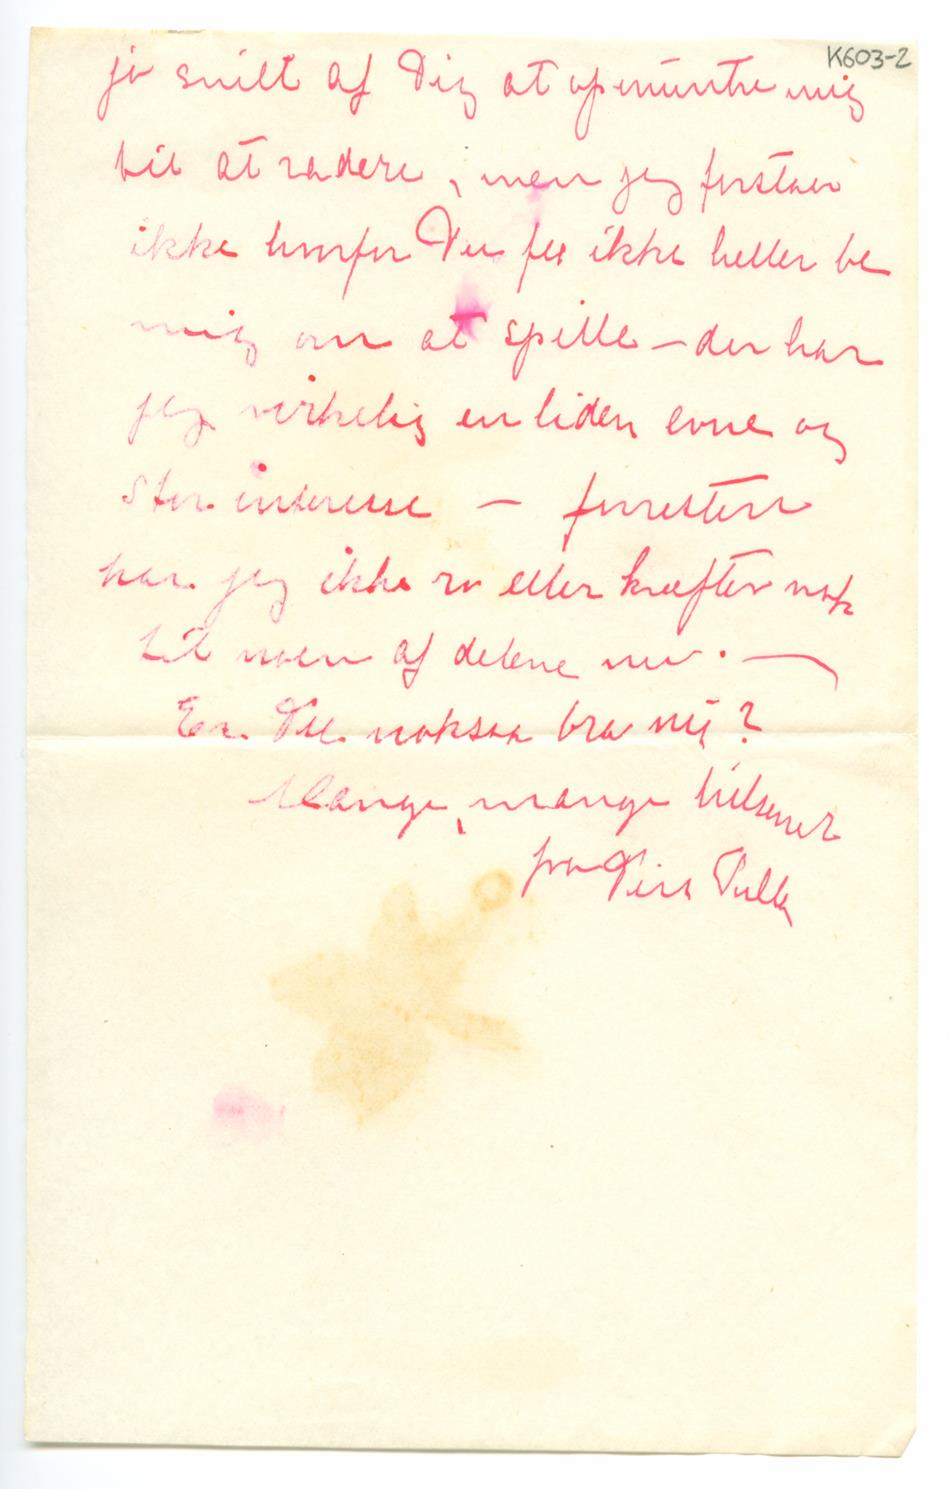 K603-2
jo snilt af Dig at opmuntre mig
til at radere, men jeg forstaar
ikke hvorfor Du ikke heller be
mig om at spille – der har
jeg virkelig en liden evne og
stor interesse – forresten
har jeg ikke ro eller kræfter nok
til noen af delene nu. —
Er Du noksaa bra nu?
Mange, mange hilsener
fra Din Tulla